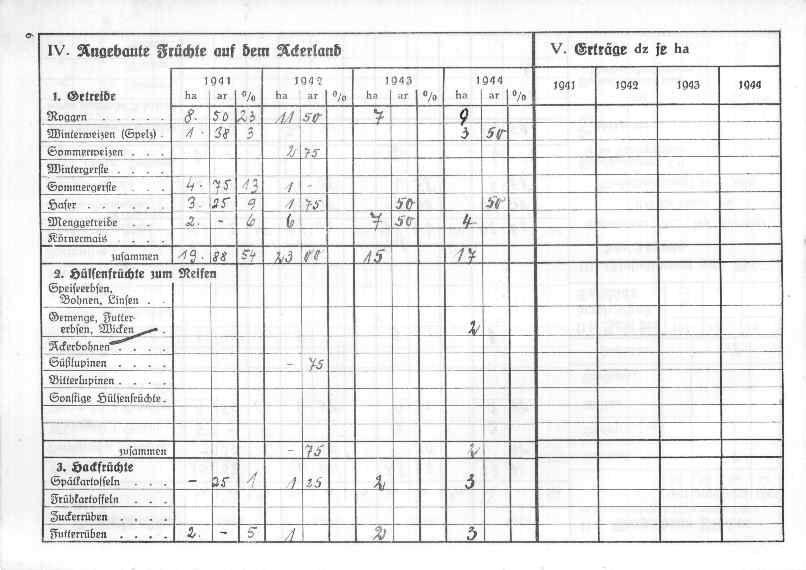 6
IV. Angebaute Früchte auf dem Ackerland V. Erträge dz je ha
1941 1942 1943 1944 1941 1942 1943 1944
1. Getreide ha ar % ha ar % ha ar % ha ar %
Roggen . . . . . 8. 50 23 11 50 7 9
Winterweizen (Spelz) . 1. 38 3 3 50
Sommerweizen . . . 2 75
Wintergerste . . . .
Sommergerste . . . . 4. 75 13 1 -
Hafer . . . . . 3. 25 9 1 75 50 50
Menggetreide . . . 2. - 6 6 7 50 4
Körnermais . . .
zusammen 19. 88 54 23 00 15 17
2. Hülsenfrüchte zum Reifen
Speiseerbsen,
Bohnen, Linsen . .
Gemenge, Futter-
erbsen, Wicken . 2
Ackerbohnen . . . .
Süßlupinen . . . . - 75
Bitterlupinen . . . .
Sonstige Hülsenfrüchte .
zusammen - 75 2
3. Hackfrüchte
Spätkartoffeln . . . - 25 1 1 25 2 3
Frühkartoffeln . . .
Zuckerrüben . . . .
Futterrüben . . . . 2. - 5 1 2 3